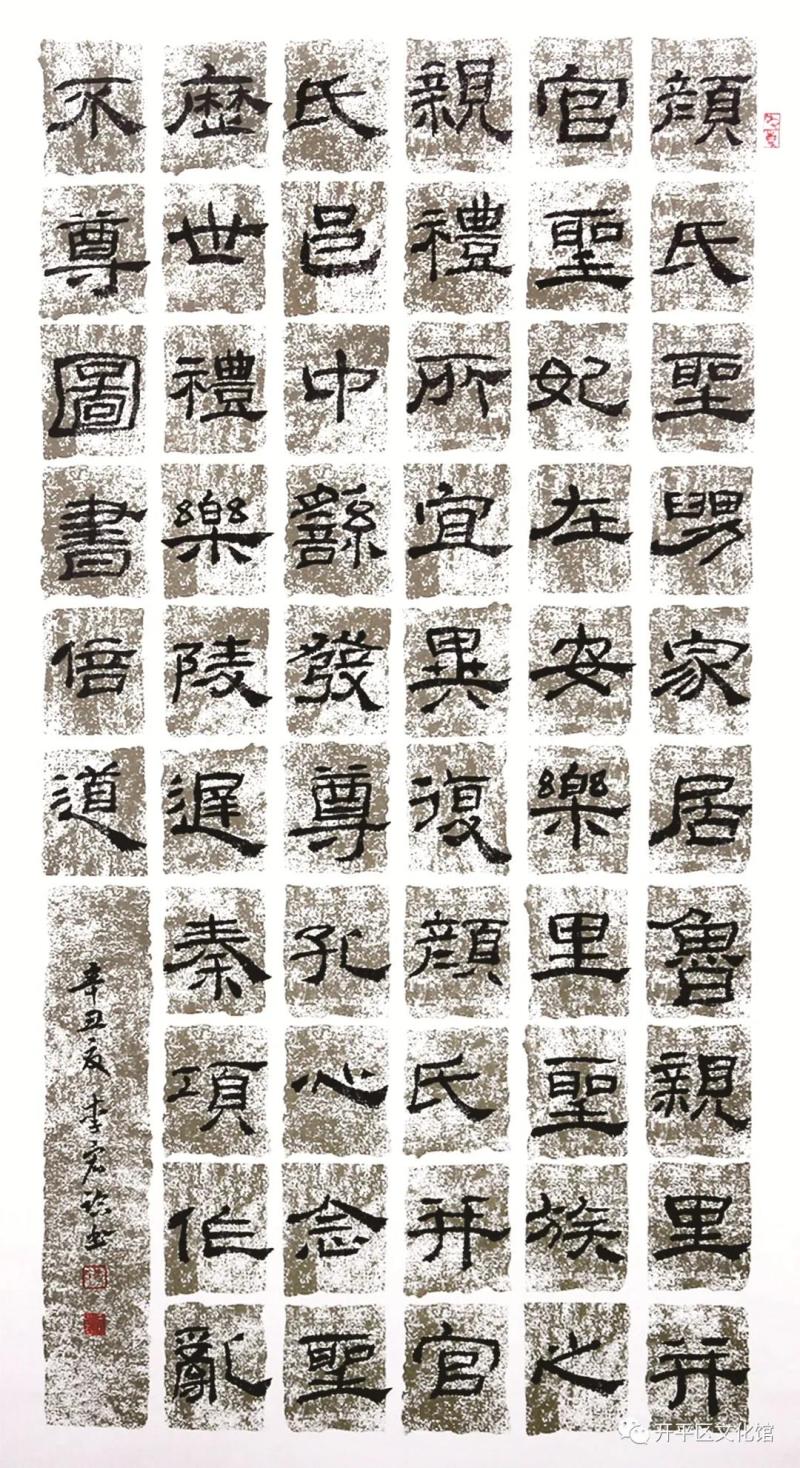 顏氏聖舅家居魯親里并
官聖妃在安樂里聖族之
親禮所宜異復顏氏并官
氏邑中繇發尊孔心念聖
歷世禮樂陵遲秦項作亂
不尊圖書倍道
辛丑夏李宏书
开平区文化馆